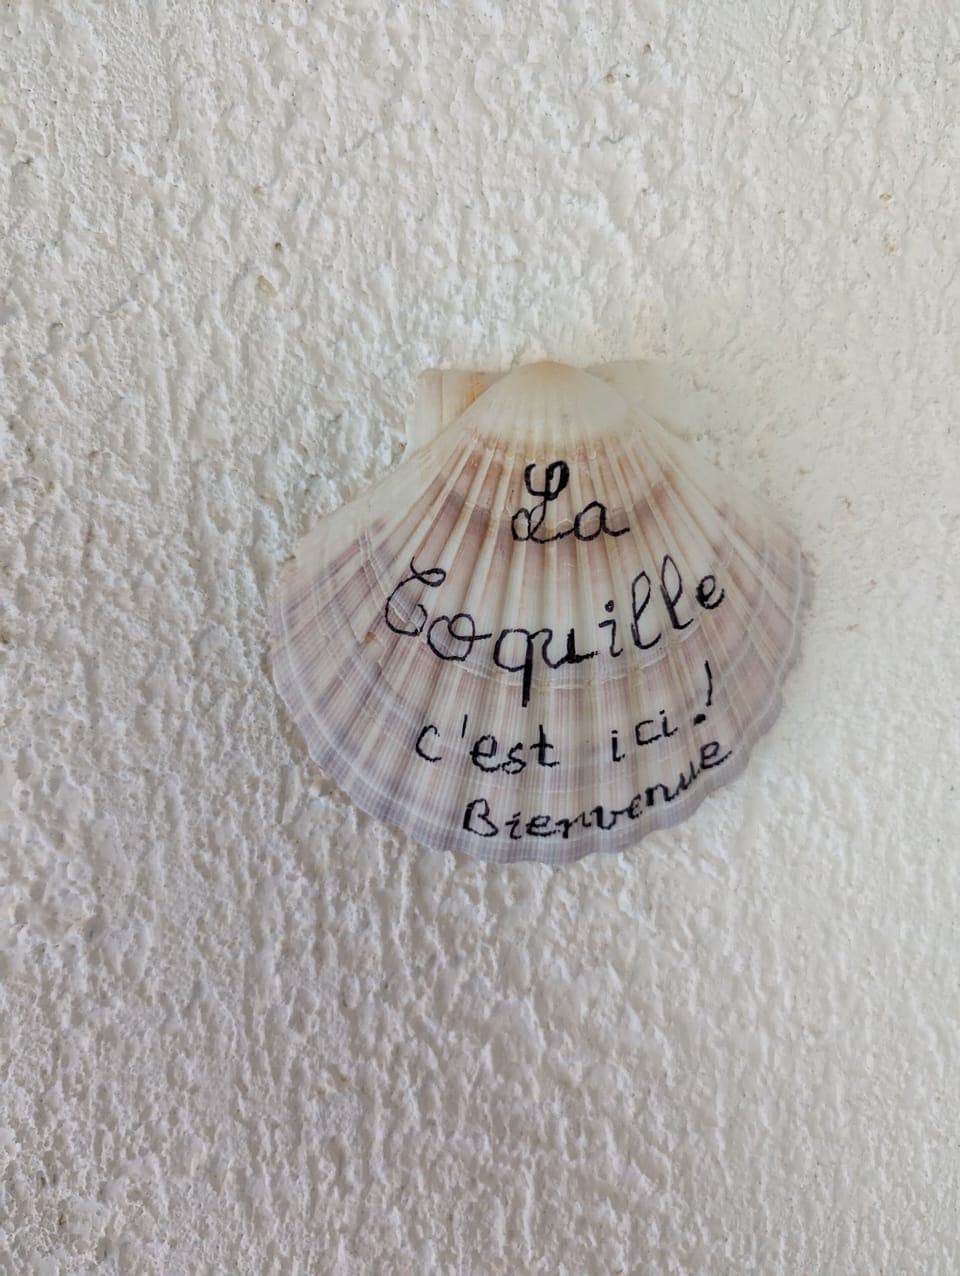 La
Coquille
c'est ici!
Bienvenue